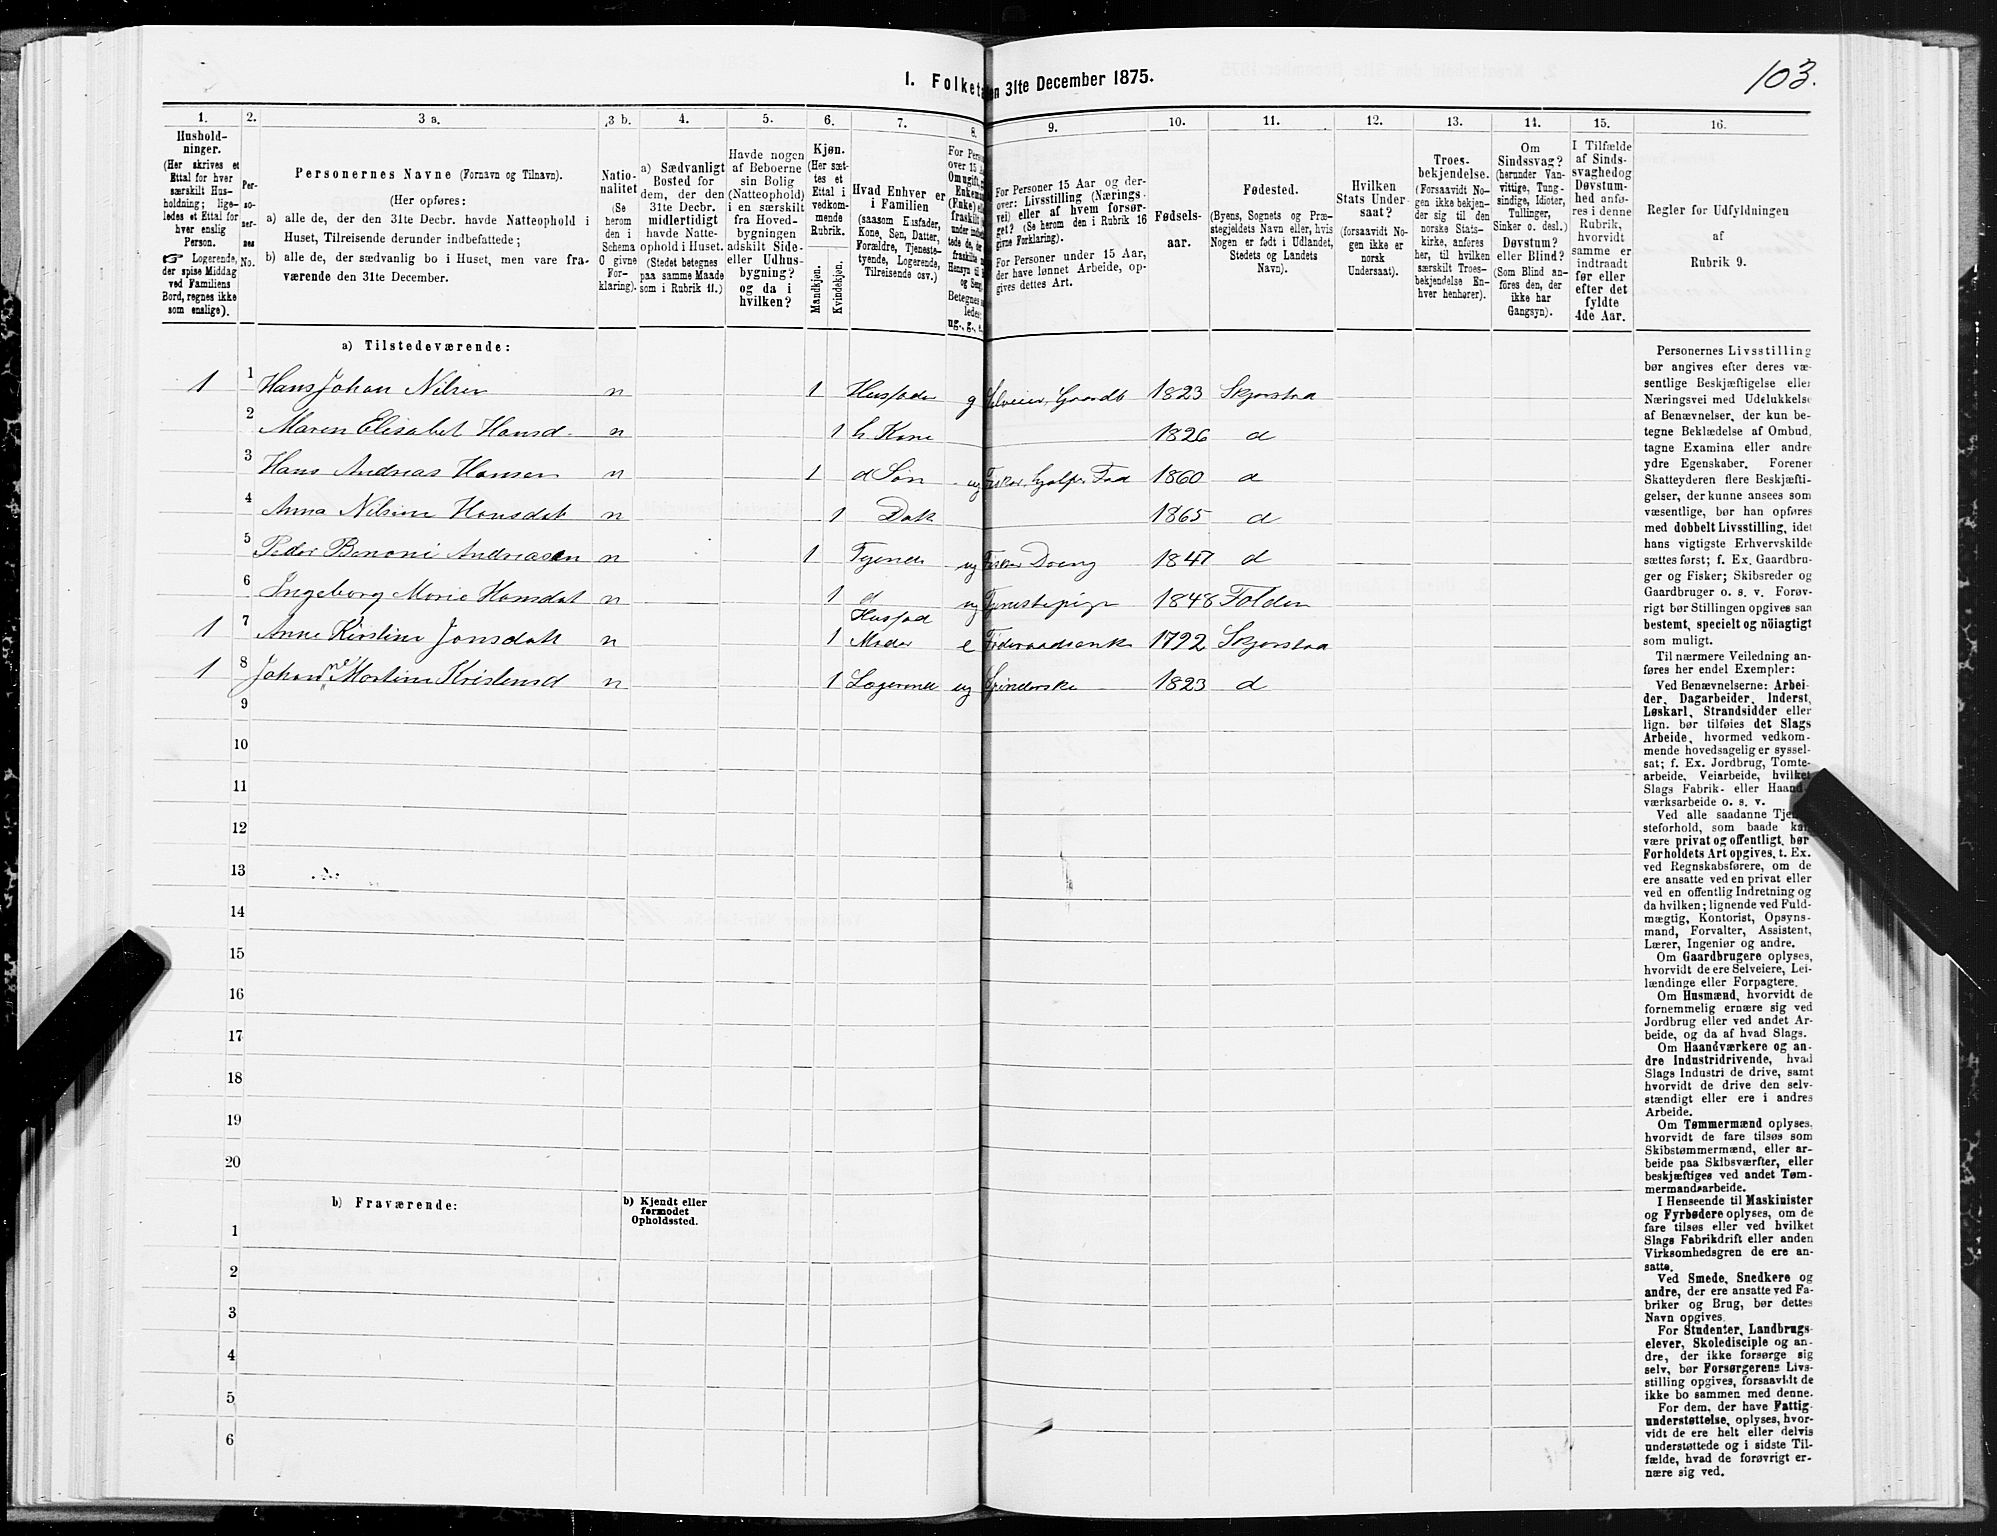 103.
1. Folketa en 31te December 1875.
1. 2. 3 a. 3 b. 4. 5. 6. 7. 8. 9. 10. 11. 12. 13. 14. 15. 16.
Hushold-
ninger.
(Her skrives et
Ettal for hver
særskilt Hus-
holdning; lige-
ledes et Ettal for
hver enslig
Person.
☞ Logerende,
der spise Middag
ved Familiens
Bord, regnes ikke
som enslige).
Per-
so-
ner-
nes
No.
Personernes Navne (Fornavn og Tilnavn).
(Her opføres:
a) alle de, der den 31te Decbr. havde Natteophold i
Huset, Tilreisende derunder indbefattede;
b) alle de, der sædvanlig bo i Huset, men vare fra-
værende den 31te December.
Natio-
nalitet
(Se
herom
den i
Schema
C givne
For-
klaring).
a) Sædvanligt
Bosted for
dem, der den
31te Decbr.
midlertidigt
havde Natte-
ophold i Huset.
(Stedet betegnes
paa samme Maade
som i Rubrik 11.)
Havde nogen
af Beboerne
sin Bolig
(Natteophold)
i en særskilt
fra Hoved-
bygningen
adskilt Side-
eller Udhus-
bygning?
og da i
hvilken?
Kjøn.
(Her sæt-
tes et
Ettal i
vedkom-
mende
Rubrik.
Mandkjøn.
Kvindekjøn.
Hvad Enhver er
i Familien
(saasom Husfader,
Kone, Søn, Datter,
Forældre, Tjeneste-
tyende, Logerende,
Tilreisende osv.)
For Perso
over 15 Aa
Omugift, g
Enkeman
(Enke) elle
fraskilt
under indbe
tede de, de
fraskilte
Hensyn til
og Seng
Betegnes s
ledes:
ug., g., e.,
For Personer 15 Aar og der-
over: Livsstilling (Nærings-
vei) eller af hvem forsør-
get? (Se herom de i Rubrik 16
givne Forklaring).
For Personer under 15 Aar,
der have lønnet Arbeide, op-
gives dettes Art.
Fødsels-
aar.
Fødested.
(Byens, Sognets og Præ-
stegjeldets Navn eller, hvis
Nogen er født i Udlandet,
Stedets og Landets
Navn).
Hvilken
Stats Under-
saat?
(forsaavidt No-
gen ikke er
norsk
Undersaat).
Troes-
bekjendelse.
(Forsaavidt No-
gen ikke bekjen-
der sig til den
norske Stats-
kirke, anføres
her, til hvilken
særskilt Troes-
bekjendelse En-
hver henhører).
Om
Sindssvag?
(herunder Van-
vittige, Tung-
sindige, Idioter,
Tullinger,
Sinker o. desl.)
Døvstum?
eller Blind?
(Som Blind an-
føres den, der
ikke har
Gangsyn).
I Tilfælde
af Sinds-
svaghed og
Døvstum-
hed anfø-
res i denne
Rubrik,
hvorvidt
samme er
indtraadt
før eller
efter det
fyldte
4de Aar.
Regler for Udfyldningen
af
Rubrik 9.
a) Tilstedeværende:
1 1 Hans Johan Nilsen n 1 Husfader g Selveier, Gaardb 1823 Skjerstad
2 Maren Elisabet Hansd n 1 h Kone 1826 d
3 Hans Andreas Hansen n 1 d Søn ug Fisker, hjælper Fad 1860 d
4 Anna Nilsine Hansdat n 1 Dat 1865 d
5 Peder Benoni Andreasen n 1 Tyende ug Fisker Dreng 1847 d
6 Ingeborg Marie Hansdat n 1 d ug Tjenestepige 1848 Folden
1 7 Anne Kirstine Jonsdatt n 1 Husfad Moder e Føderaadsenke 1792 Skjerstad
1 8 Johanne Martine Kristensd n 1 Logerende ug Spinderske 1823 d
9
10
11
12
13
14
15
16
17
18
19
20
b) Fraværende:
b) Kjendt eller
formodet
Opholdssted.
1
2
3
4
5
6
Personernes Livsstilling
bør angives efter deres væ-
sentlige Beskjæftigelse eller
Næringsvei med Udelukkelse
af Benævnelser, der kun be-
tegne Beklædelse af Ombud,
tagne Examina eller andre
ydre Egenskaber. Forener
Skatteyderen flere Beskjæfti-
gelser, der kunne ansees som
væsentlige, bør han opføres
med dobbelt Livsstilling, idet
hans vigtigste Erhvervskilde
sættes først; f. Ex. Gaardbru-
ger og Fisker; Skibsreder og
Gaardbruger o. s. v. Forøv-
rigt bør Stillingen opgives saa
bestemt, specielt og nöiagtigt
som muligt.
Til nærmere Veiledning an-
føres her endel Exempler:
Ved Benævnelserne: Arbei-
der, Dagarbeider, Inderst,
Løskarl, Strandsidder eller
lign. bør tilføies det Slags
Arbeide, hvormed vedkom-
mende hovedsagelig er syssel-
sat; f. Ex. Jordbrug, Tomte-
arbeide, Veiarbeide, hvilket
Slags Fabrik- eller Haand-
værksarbeide o. s. v.
Ved alle saadanne Tje
steforhold, som baade kan
være privat og offentligt, bør
Forholdets Art opgives, t. Ex.
ved Regnskabsførere, om de
ere ansatte ved en privat eller
ved en offentlig Indretning og
da hvilken; lignende ved Fuld-
mægtig, Kontorist, Opsyns-
mand, Forvalter, Assistent,
Lærer, Ingeniør og andre.
Om Gaardbrugere oplyses,
hvorvidt de ere Selveiere, Lei-
lændinge eller Forpagtere.
Om Husmænd, hvorvidt de
fornemmelig ernære sig ved
Jordbrug eller ved andet Ar-
beide, og da af hvad Slags.
Om Haandværkere og an-
dre Industridrivende, hvad
Slags Industri de drive, samt
hvorvidt de drive den selv-
stændigt eller ere i andres
Arbeide.
Om Tømmermænd oplyses,
hvorvidt de fare tilsøs som
Skibstømmermænd, eller ar-
beide paa Skibsværfter, eller
beskjæftiges ved andet Tøm-
mermandsarbeide.
I Henseende til Maskinister
og Fyrbødere oplyses, om de
fare tilsøs eller ved hvilket
Slags Fabrikdrift eller anden
Virksomhedsgren de ere an-
satte.
Ved Smede, Snedkere og
andre, der ere ansatte ved Fa-
briker og Brug, bør dettes
Navn opgives.
For Studenter, Landbrugs-
elever, Skoledisciple og an-
dre, der ikke forsørge sig
selv, bør Forsørgerens Livs-
stilling opgives, forsaavidt de
ikke bo sammen med denne.
For dem, der have Fattig-
understøttelse, oplyses, hvor-
vidt de ere helt eller delvis
understøttede og i sidste Til-
fælde, hvad de forøvrigt er-
nære sig ved.